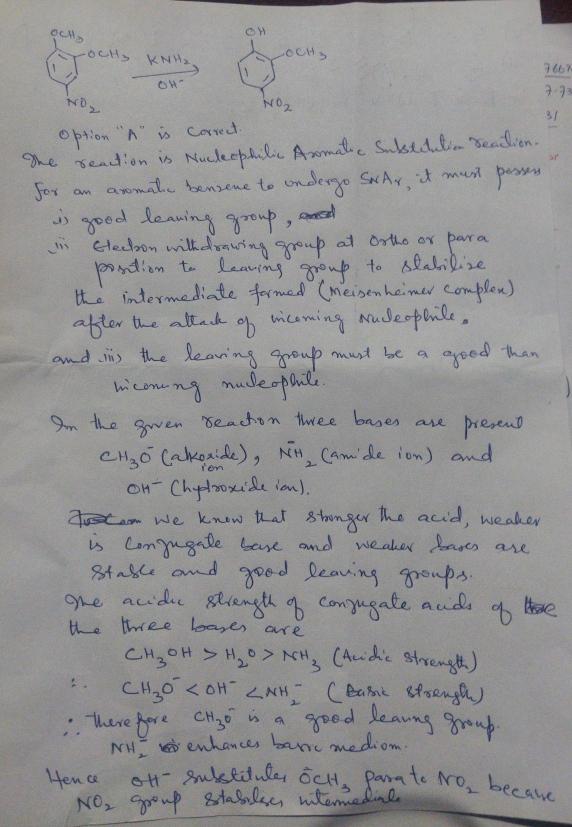 OCH3 OH
OCH3 KNH2 OCH3
OH-
NO2 NO2
7667
7.73
31
Option "A" is Correct.
The reaction is Nucleophilic Aromatic Substitution reaction.
For an aromatic benzene to undergo SNAr, it must possess
i) good leaving group,
ii) Electron withdrawing group at Ortho or para
position to leaving group to stabilise
the intermediate formed (Meisenheimer Complex)
after the attack of incoming Nucleophile.
and iii) the leaving group must be a good than
incoming nucleophile.
In the given reaction three bases are present
CH3O- (alkoxide ion), NH2- (amide ion) and
OH- (hydroxide ion).
We know that stronger the acid, weaker
is Conjugate base and weaker bases are
Stable and good leaving groups.
The acidic strength of conjugate acids of
the three bases are
CH3OH > H2O > NH3 (Acidic strength)
∴ CH3O- < OH- < NH2- (Basic strength)
∴ Therefore CH3O- is a good leaving group.
NH2- enhances basic mediom.
Hence OH- substitutes OCH3 para to NO2 because
NO2 group stabilises intermediate